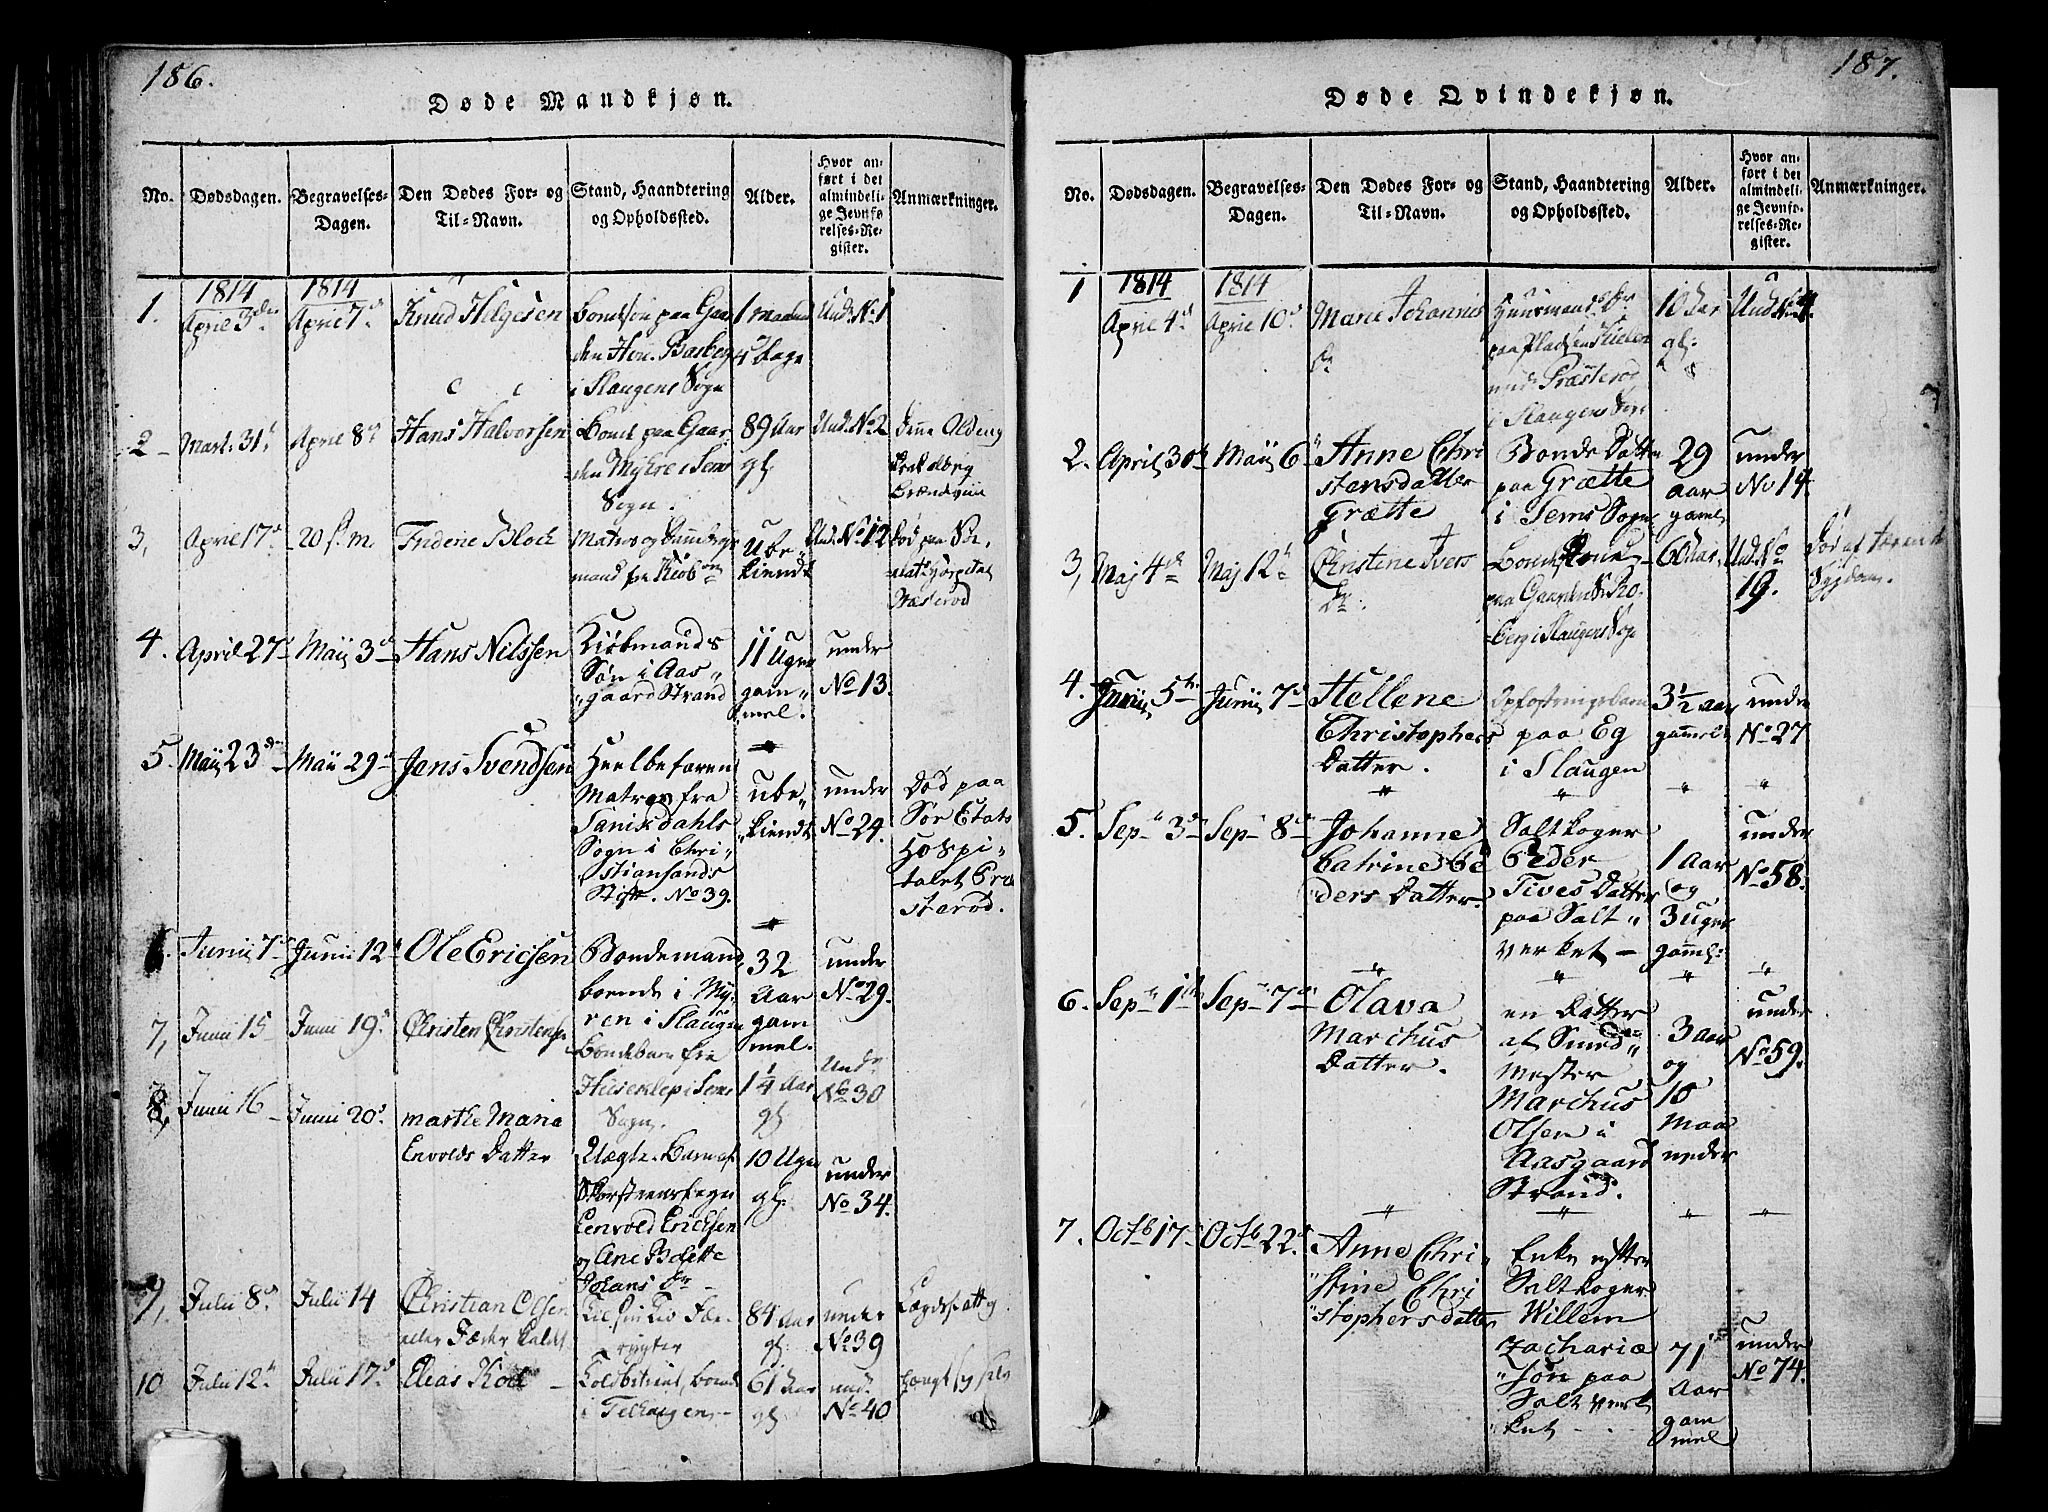 186.
Døde Mandkjøn.
No.
Dødsdagen.
Begravelses-
Dagen.
Den Dødes For- og
Til-Navn.
Stand, Haandtering
og Opholdssted.
Alder.
Hvor an-
ført i det
almindeli-
ge Jevnfø-
relses-Re-
gister.
Anmærkninger.
1.
1814
April 3die
1814
April 7d
Knud Helgesen
Bondesøn paa Gaar
den Hou. Basberg
i Slaugens Sogn
1 Maaned
4 Dage
Und. No 1
2
Mart. 31t
April 8d
Hans Halvorsen
Bonde paa Gaar
den Myhre i Sems
Sogn.
89 Aar
gl
Und. No 2
Denne Olding
Brændviin
3,
April 17d
20 s. m.
Frideric Bloch
Matros og
mand fra Kiøb
Ube
kiendt
Und. No 12
Død paa Sø-
Etats Hospital
Præsterød
4.
April 27d
Maij 3d
Hans Nilssen
Kiøbmands
Søn i Aas„
„gaard Strand
11 Uger
gam„
mel.
under
No 13.
5.
Maij 23de
Maij 29d
Jens Svendsen
Heelbefaren
Matros fra
Dahls
Sogn i Chri„
„stiansands
Stift. No 39.
ube„
„kiendt
under
No 24.
Død paa
Sør Etats
Hospi„
talet Præ
sterod.
6.
Junij 7d
Junii 12t
Ole Ericsen
Bondemand
boende i My„
ren i Slaugen
32
Aar
gam
mel.
under
No 29.
7,
Junii 15
Junii 19d
Christen Christens
Bondebarn fra
Huseklep i Sems
Sogn.
1 1/4 Aar
gl
Und
No 30
8,
Junii 16
Junii 20d
Marthe Maria
Envolds Datter
Uægte Barn af
Skorsteensfeger
Eenvold Ericksen
og Ane Bolette
Johans Dr
10 Uger
gl.
under
No 34.
9,
Julii 8d
Julii 14
Christian Olsen
84 Aar
gl.
under
No 39
Lægdsfattig
10
Julii 12t
Julii 17d
Elias Kock
61 Aar
gl
und.
No 40
187.
Døde Qvindekjøn.
No.
Dødsdagen.
Begravelses-
Dagen.
Den Dødes For- og
Til-Navn.
Stand, Haandtering
og Opholdssted.
Alder.
Hvor an-
ført i det
almindeli-
ge Jevnfø-
relses-Re-
gister.
Anmærkninger.
1
1814
April 4d
1814
April 10d
Marie Johannis
Dr
Huusmands Dr
paa Pladsen Kielen
und. Præsterød
i Slaugens Sogn
10 Aar
gl:
Und. No 4
2.
April 30te
Maij 6
Anne Chri
stensdatter
Grætte
Bonde Datter
paa Grætte
i Sems Sogn
29
aar
gamel
under
No 14.
3,
Maj 4d
Maj 12t
Christine Ivers
Dr.
Bonde Kone
paa Gaarden S: Ro
berg i Slaugens Sogn
60 Aar
Und. No
19.
Død af tærende
Sygdom.
4.
Junij 5te
Junij 7d
Hellene
Christophers
Datter.
Opfostringsbarn
paa Eg
i Slaugen
3 1/2 Aar
gammel
under
No 27
5.
Sep 3d
Sep 8d
Johanne
Catrine Pe
ders Datter.
Saltkoger
Peder
Tives Datter
paa Salt„
verket
1 Aar
og
3 Uger
gaml:
under
No 58.
6.
Sep 1ste
Sep 7d
Olava
Marchus
Datter.
en Datter
af Smed„
Mester
Marchus
Olsen i
Aasgaard
Strand.
3 Aar
og
10
Maa
neder
under
No 59.
7.
Octb 17d
Octb 22d
Anne Chri„
„stine Chri
„stophersdatter
Enke efter
Saltkoger
Willem
Zachariæ
„søn paa
Saltverk
ket
71
Aar
gam
mel
under
No 74.